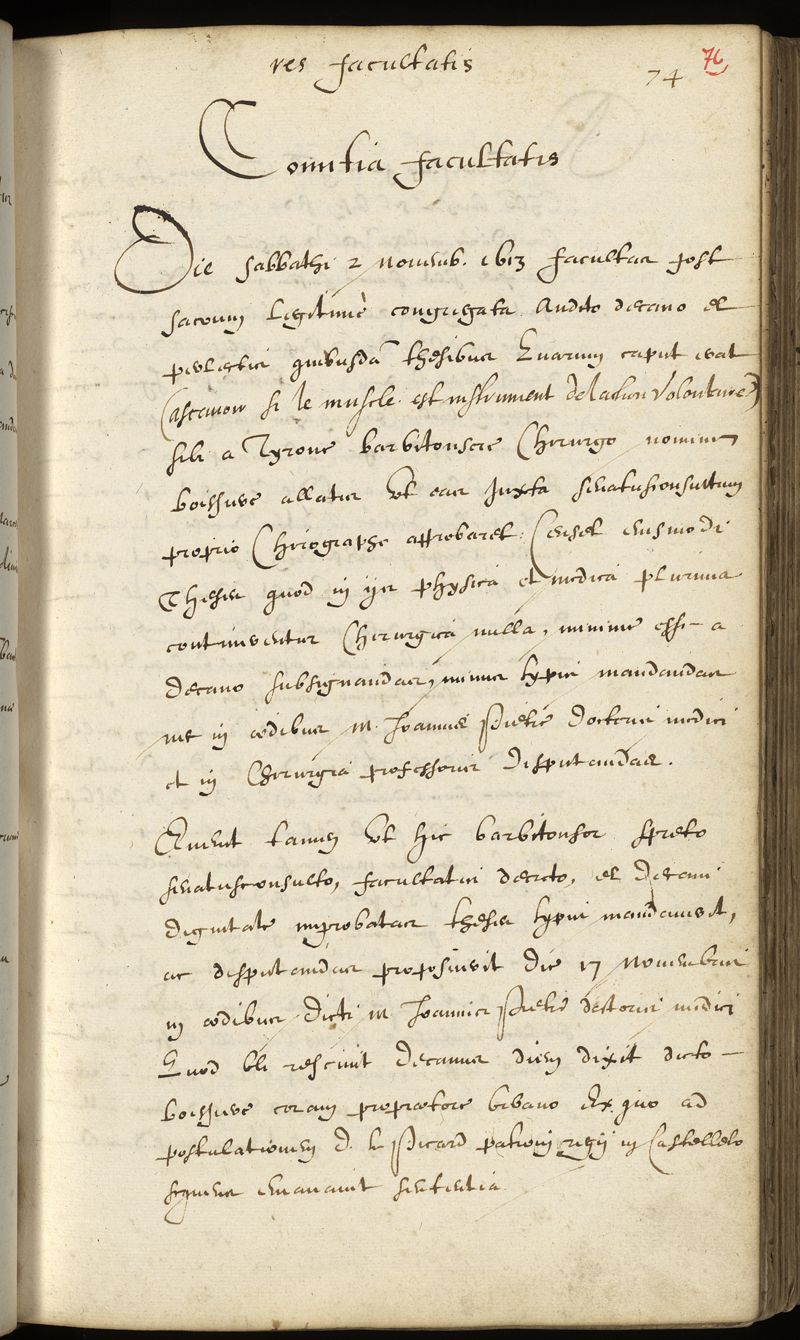 res facultatis
74 76
Comitia facultatis
Die sabbathi 2 novemb. 1613 facultas post
sacrum legitimè congregata Audito decano et
perlectis quibusdã thesibus Quarum caput erat
(ascavoir si le muscle est instrument de laction volontaire)
sibi a Tyrone barbitonsore Chirurgo nomine
boissure allatis Ut eas Juxta senatusconsultum
proprio Chirographo approbaret. Censet eiusmodi
Theses quod in iis physica et medica plurima
continerentur Chirurgica nulla, minime esse a
decano subsignandas, minus typis mandandas
nec in ædibus M. Joannis Pietre doctoris medici
et in Chirurgia professoris disputandas.
Evenit tamen Ut hic barbitonsor spreto
senatusconsulto, facultatis decreto, et decani
dignitate improbatas theses typis mandaverit,
ac disputandas proposuerit die 17 Novembris
in ædibus dicti M Joannis Pietre doctoris medici
Quod ubi rescivit decanus diem dixit dicto
boissure coram proprætore urbano Ex quo ad
postulationem D. le Picard patroni regii in Castelleto
sequens emanavit sententia